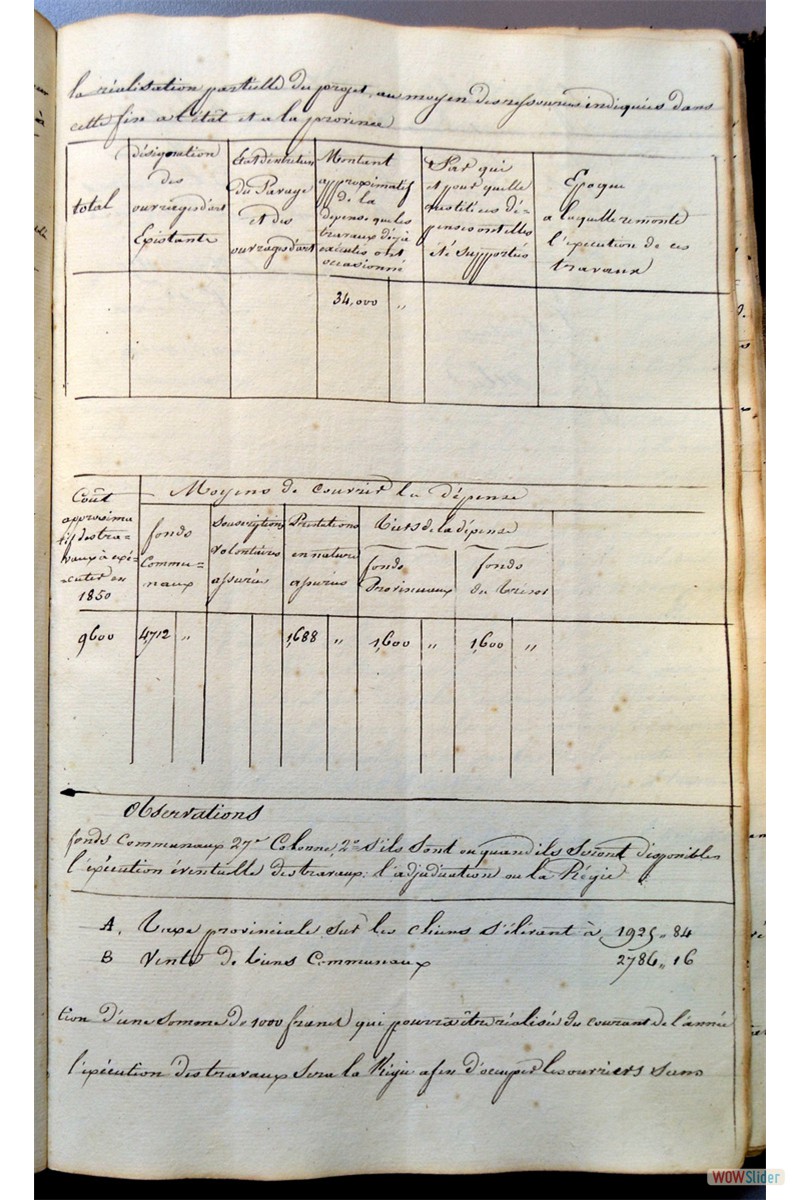 la réalisation partielle du projet, au moyen des ressources indiquées dans
cette fin a l'état et a la province
total
désignation
des
ouvrages d'art
Existants
Etat d'entretien
du Pavage
et des
ouvrages d'art
Montant
approximatif
de la
dépense que les
travaux déjà
exécutés ont
occasionné
Par qui
et pour quelle
quotité ces dé-
penses ont elles
été supportées
Epoque
a laquelle remonte
l'exécution de ces
travaux
34,000 "
Coût
approxima
tif des tra-
vaux à exé-
cuter en
1850
Moyens de couvrir la dépense
fonds
Commu-
naux
Souscriptions
volontaires
assurées
Prestations
en nature
assurées
Tiers de la dépense
fonds
Provinciaux
fonds
du Trésor
9600 4,712 " 1,688 " 1,600 " 1,600 "
Observations
fonds Communaux 27e Colonne, 2o S'ils sont ou quand ils seront disponibles
l'exécution éventuelle des travaux: l'adjudication ou la Régie
A. Taxe provinciale sur les chiens s'élevant à 1925 " 84
B Vente de biens Communaux 2786 " 16
tion d'une somme de 1000 francs qui pourra être réalisée du courant de l'année
l'exécution des travaux sera la Régie afin d'occuper les ouvriers sans
WOWSlider